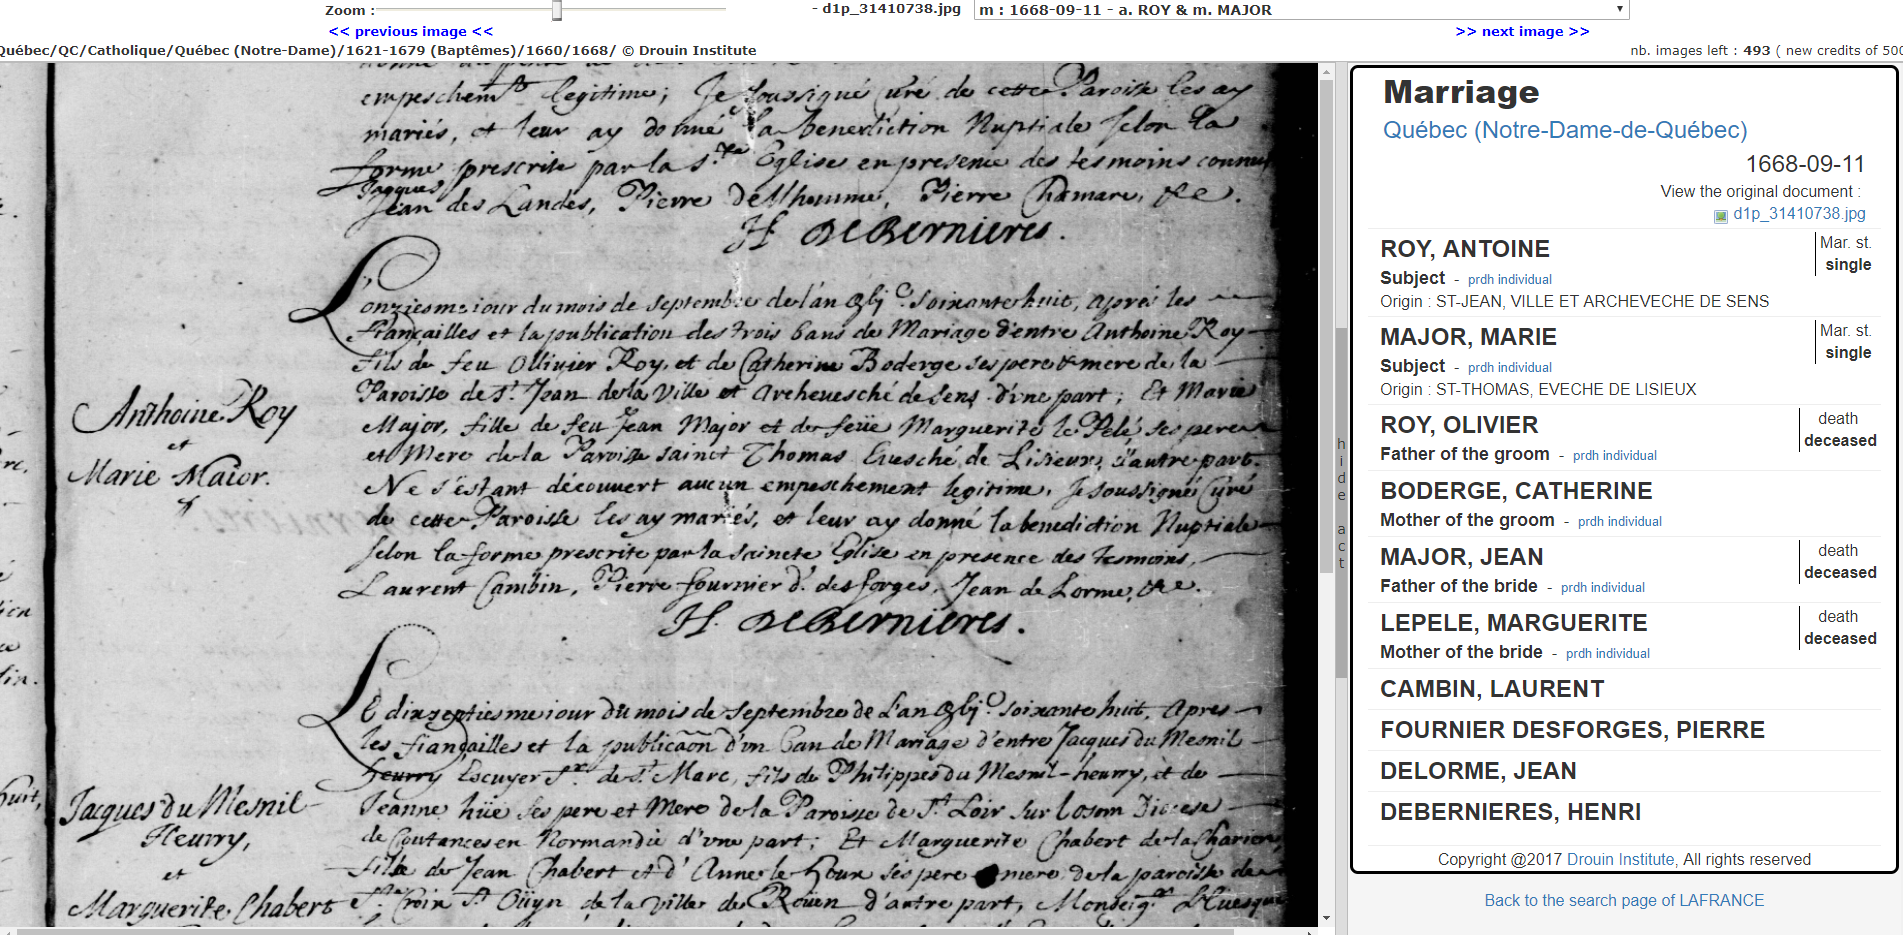 Zoom :
- d1p_31410738.jpg
m : 1668-09-11 - a. ROY & m. MAJOR
<< previous image <<
>> next image >>
Québec/QC/Catholique/Québec (Notre-Dame)/1621-1679 (Baptêmes)/1660/1668/ © Drouin Institute
nb. images left : 493 ( new credits of 500
empeschemt legitime; Je soussigné Curé de cette Paroisse les ay
mariés, et leur ay donné la benediction Nuptiale selon la
forme prescrite par la Ste Eglise en presence des tesmoins connus
Jacques
Jean des Landes, Pierre Pierre &c.
H. deBernieres.
Anthoine Roy
et
Marie Maior.
L'onziesme iour du mois de Septembre de l'an soixante huit, apres les
fiançailles et la publication des trois bans de Mariage d'entre Anthoine Roy
fils de feu Ollivier Roy, et de Catherine Boderge ses pere & mere de la
Paroisse de St Jean de la Ville et Archeuesché de Sens d'une part; Et Marie
Major, fille de feu Jean Major et de feüe Marguerite le Pelé, ses pere
et Mere de la Paroisse sainct Thomas Euesché de Lisieux, d'autre part.
Ne s'estant découuert aucun empeschement legitime, Je soussigné Curé
de cette Paroisse les ay mariés, et leur ay donné la benediction Nuptiale
selon la forme prescrite par la saincte Eglise en presence des tesmoins,
Laurent Cambin, Pierre fournier d. des forges, Jean de Lorme, &c.
H. deBernieres.
Jacques du Mesnil
Heurry,
et
Marguerite Chabert
Le dixseptiesme iour du mois de Septembre de l'an soixante huit, Apres
les fiançailles et la publicaõn d'un ban de Mariage d'entre Jacques du Mesnil
heurry Escuyer Sr de St Marc, fils de Philippes du Mesnil-heurry, et de
Jeanne hüe ses pere et Mere de la Paroisse de St Loir sur Diocese
de Coutances en Normandie d'une part; Et Marguerite Chabert de la
fille de Jean Chabert et d'Anne le ses pere mere de la paroisse de
Ste Croix St Oüyn de la Ville de Roüen d'autre part, Monseigr L'Euesque
hide act
Marriage
Québec (Notre-Dame-de-Québec)
1668-09-11
View the original document :
d1p_31410738.jpg
ROY, ANTOINE
Mar. st.
single
Subject - prdh individual
Origin : ST-JEAN, VILLE ET ARCHEVECHE DE SENS
MAJOR, MARIE
Mar. st.
single
Subject - prdh individual
Origin : ST-THOMAS, EVECHE DE LISIEUX
ROY, OLIVIER
death
deceased
Father of the groom - prdh individual
BODERGE, CATHERINE
Mother of the groom - prdh individual
MAJOR, JEAN
death
deceased
Father of the bride - prdh individual
LEPELE, MARGUERITE
death
deceased
Mother of the bride - prdh individual
CAMBIN, LAURENT
FOURNIER DESFORGES, PIERRE
DELORME, JEAN
DEBERNIERES, HENRI
Copyright @2017 Drouin Institute, All rights reserved
Back to the search page of LAFRANCE